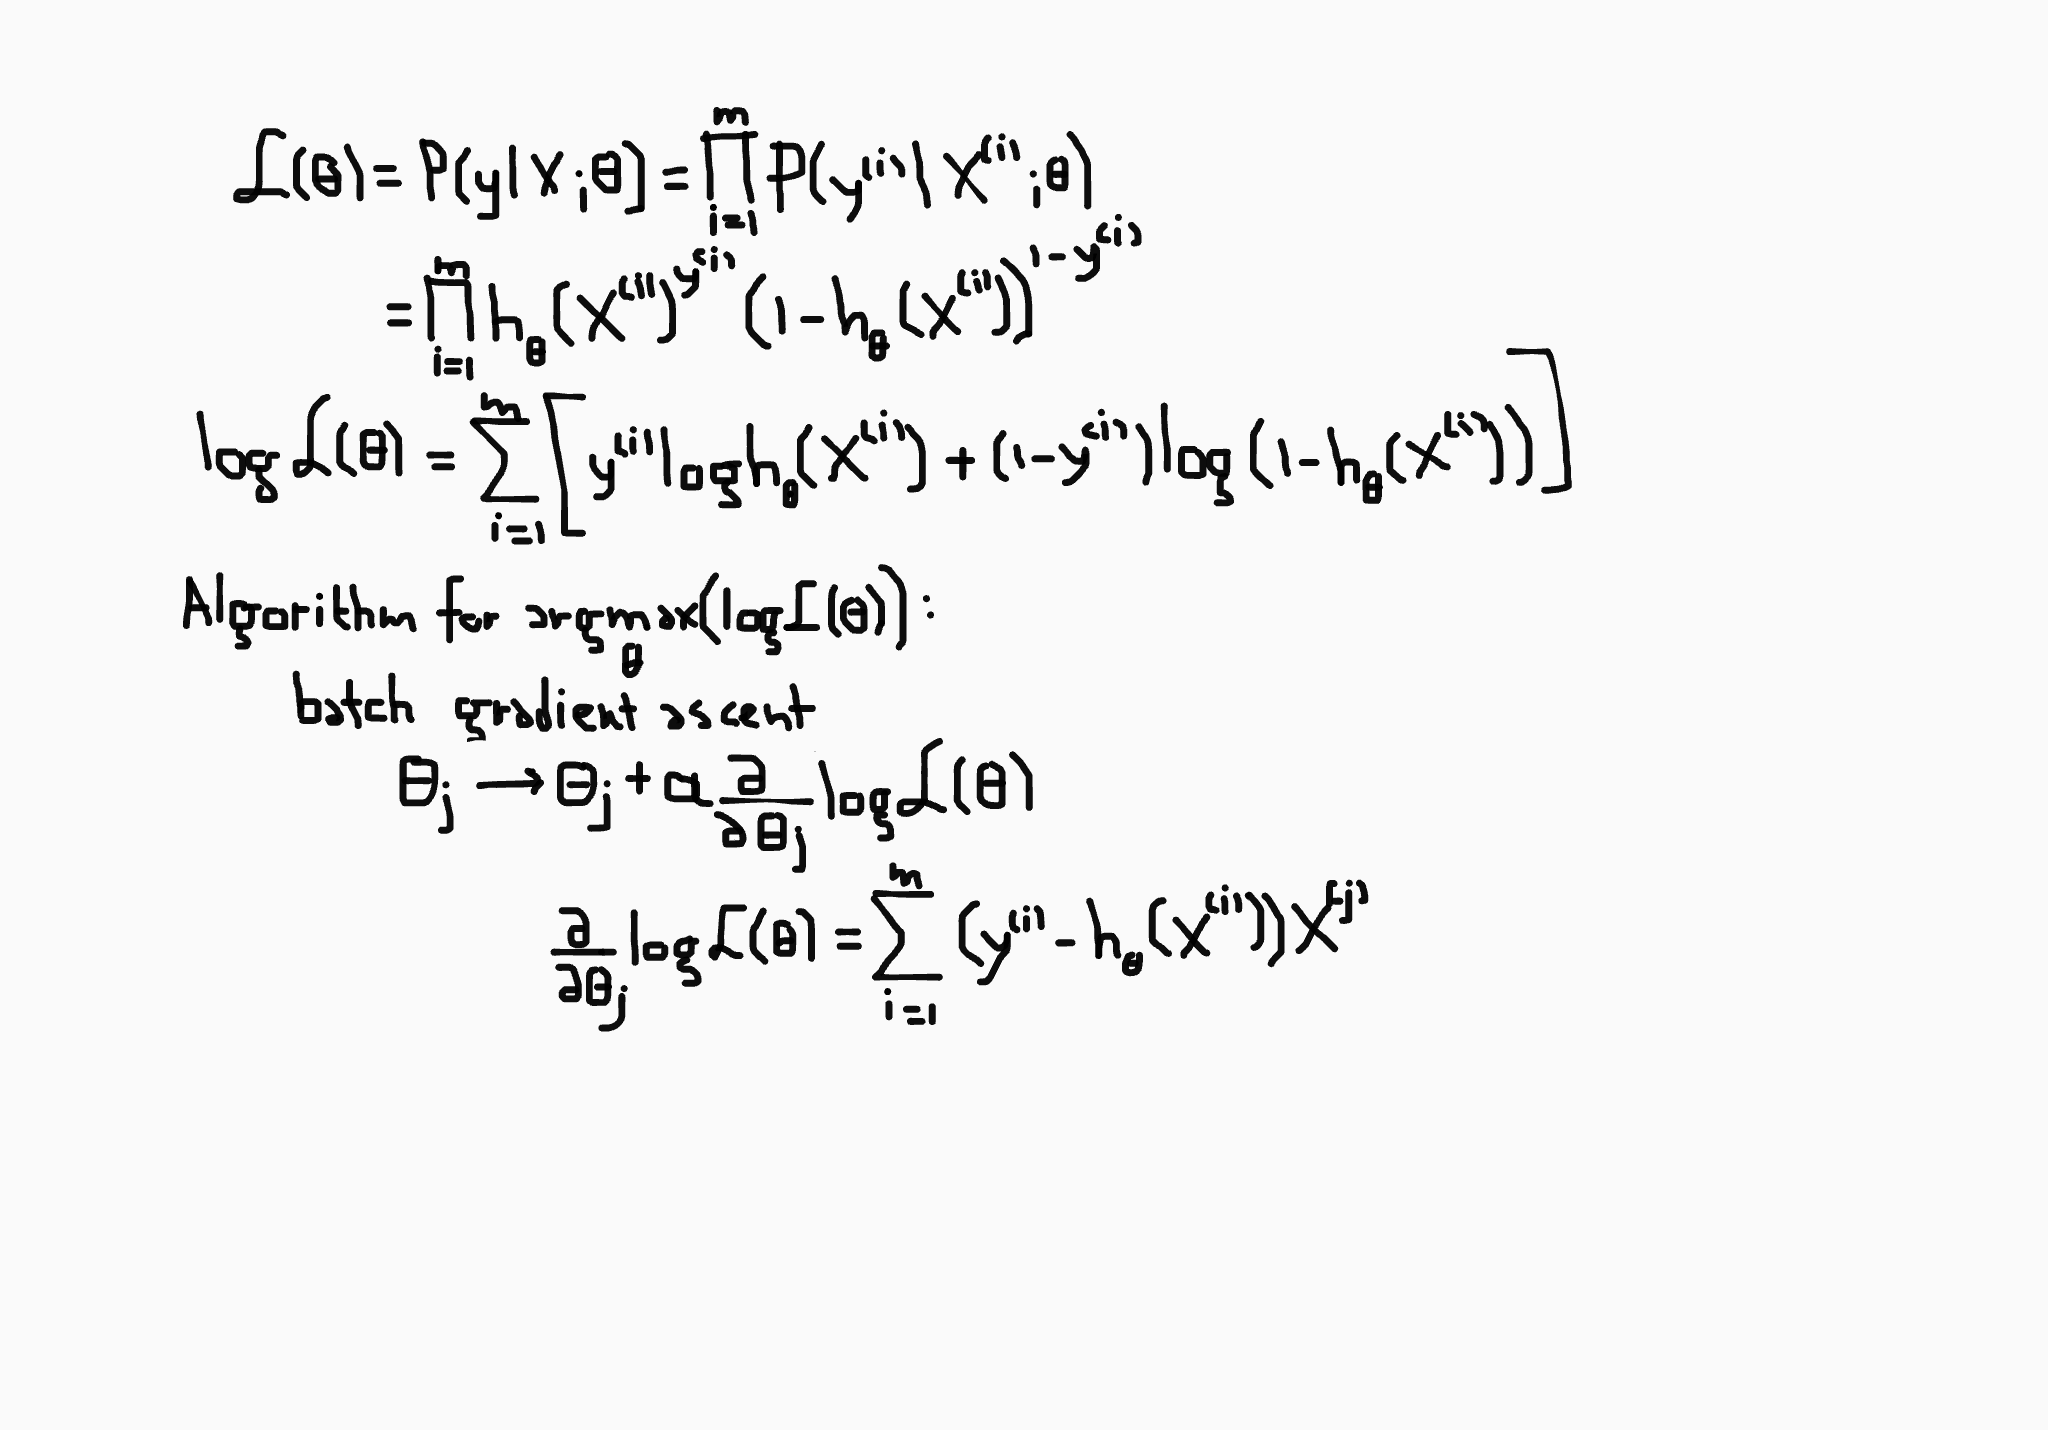 ℒ(θ) = P(y|X;θ) = ∏_{i=1}^{m} P(y^{(i)}|X^{(i)};θ)
= ∏_{i=1}^{m} h_θ(X^{(i)})^{y^{(i)}} (1-h_θ(X^{(i)}))^{1-y^{(i)}}
log ℒ(θ) = ∑_{i=1}^{m} [y^{(i)} log h_θ(X^{(i)}) + (1-y^{(i)}) log(1-h_θ(X^{(i)}))]
Algorithm for argmax_θ(log ℒ(θ)):
batch gradient ascent
θ_j → θ_j + α ∂/∂θ_j log ℒ(θ)
∂/∂θ_j log ℒ(θ) = ∑_{i=1}^{m} (y^{(i)} - h_θ(X^{(i)})) X^{(j)}